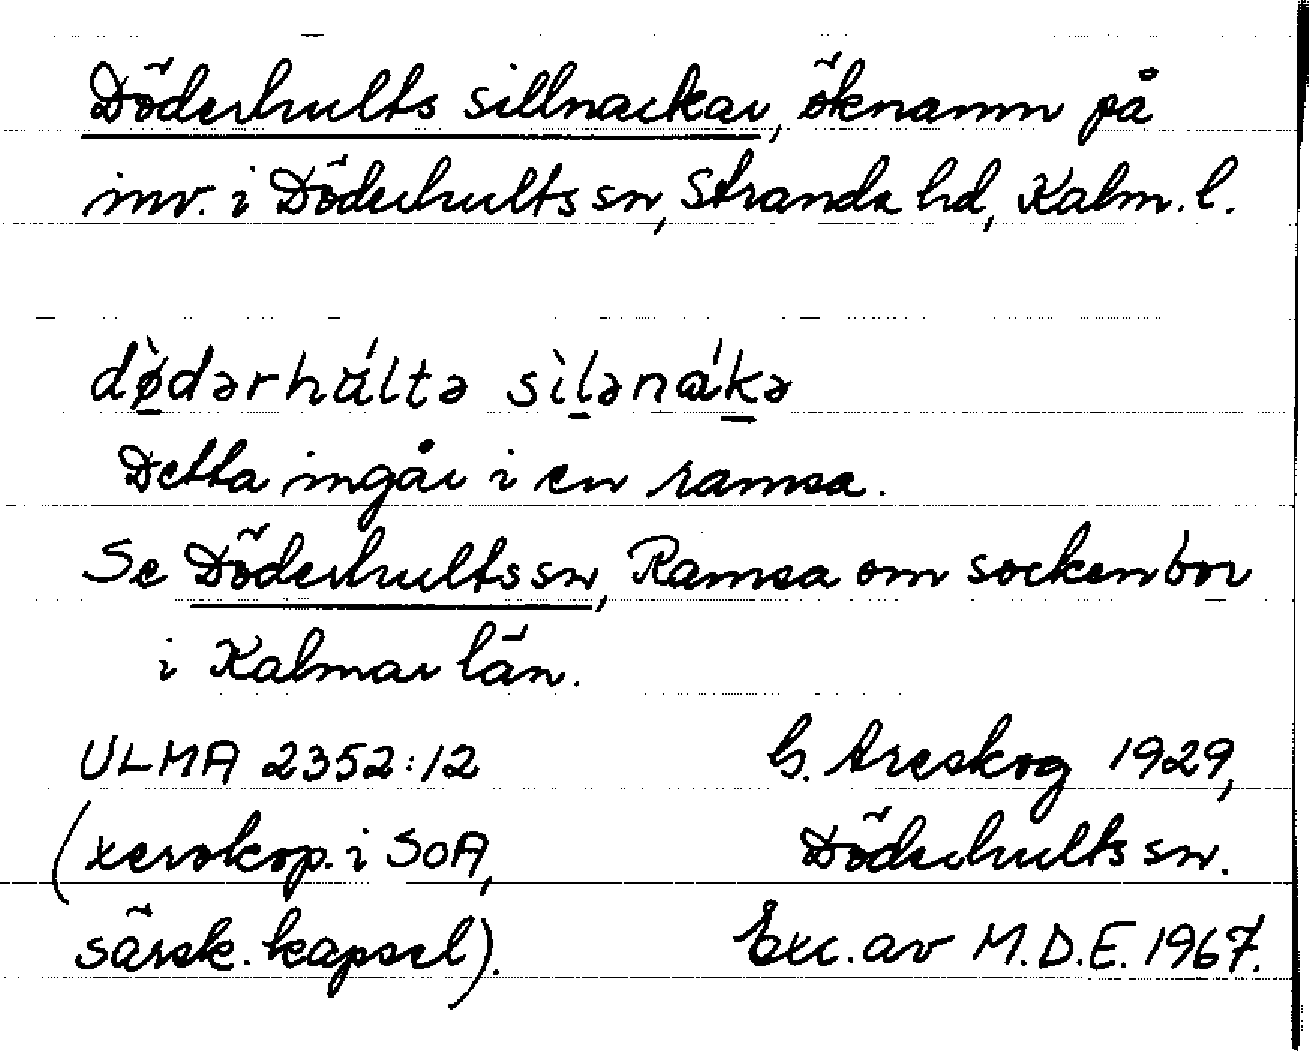 Döderhults sillnackar, öknamn på
inv. i Döderhults sn, Stranda hd, Kalm. l.
dø̀dərhúltə sìlənákə
Detta ingår i en ramsa.
Se Döderhults sn, Ramsa om sockenbor
i Kalmar län.
ULMA 2352:12 G. Areskog 1929,
(xerokop. i SOA, Döderhults sn.
särsk. kapsel). Exc. av M.D.E. 1967.